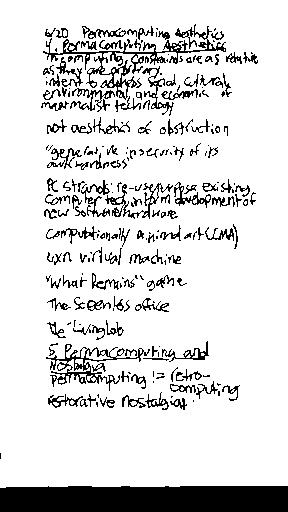 6/20 Permacomputing Aesthetics
4. Permacomputing Aesthetics
in computing, constraints are as relative
as they are arbitrary.
intent to address social, cultural,
environmental, and economic of
maximalist technology
not aesthetics of obstruction
"generative insecurity of its
own hardness"
PC strands: re-use/purpose existing
computer tech, inform development of
new software/hardware
Computationally minimal art (CMA)
uxn virtual machine
"What Remains" game
The Screenless office
The Living lab
5. Permacomputing and
Nostalgia
permacomputing != retro-
computing
restorative nostalgia